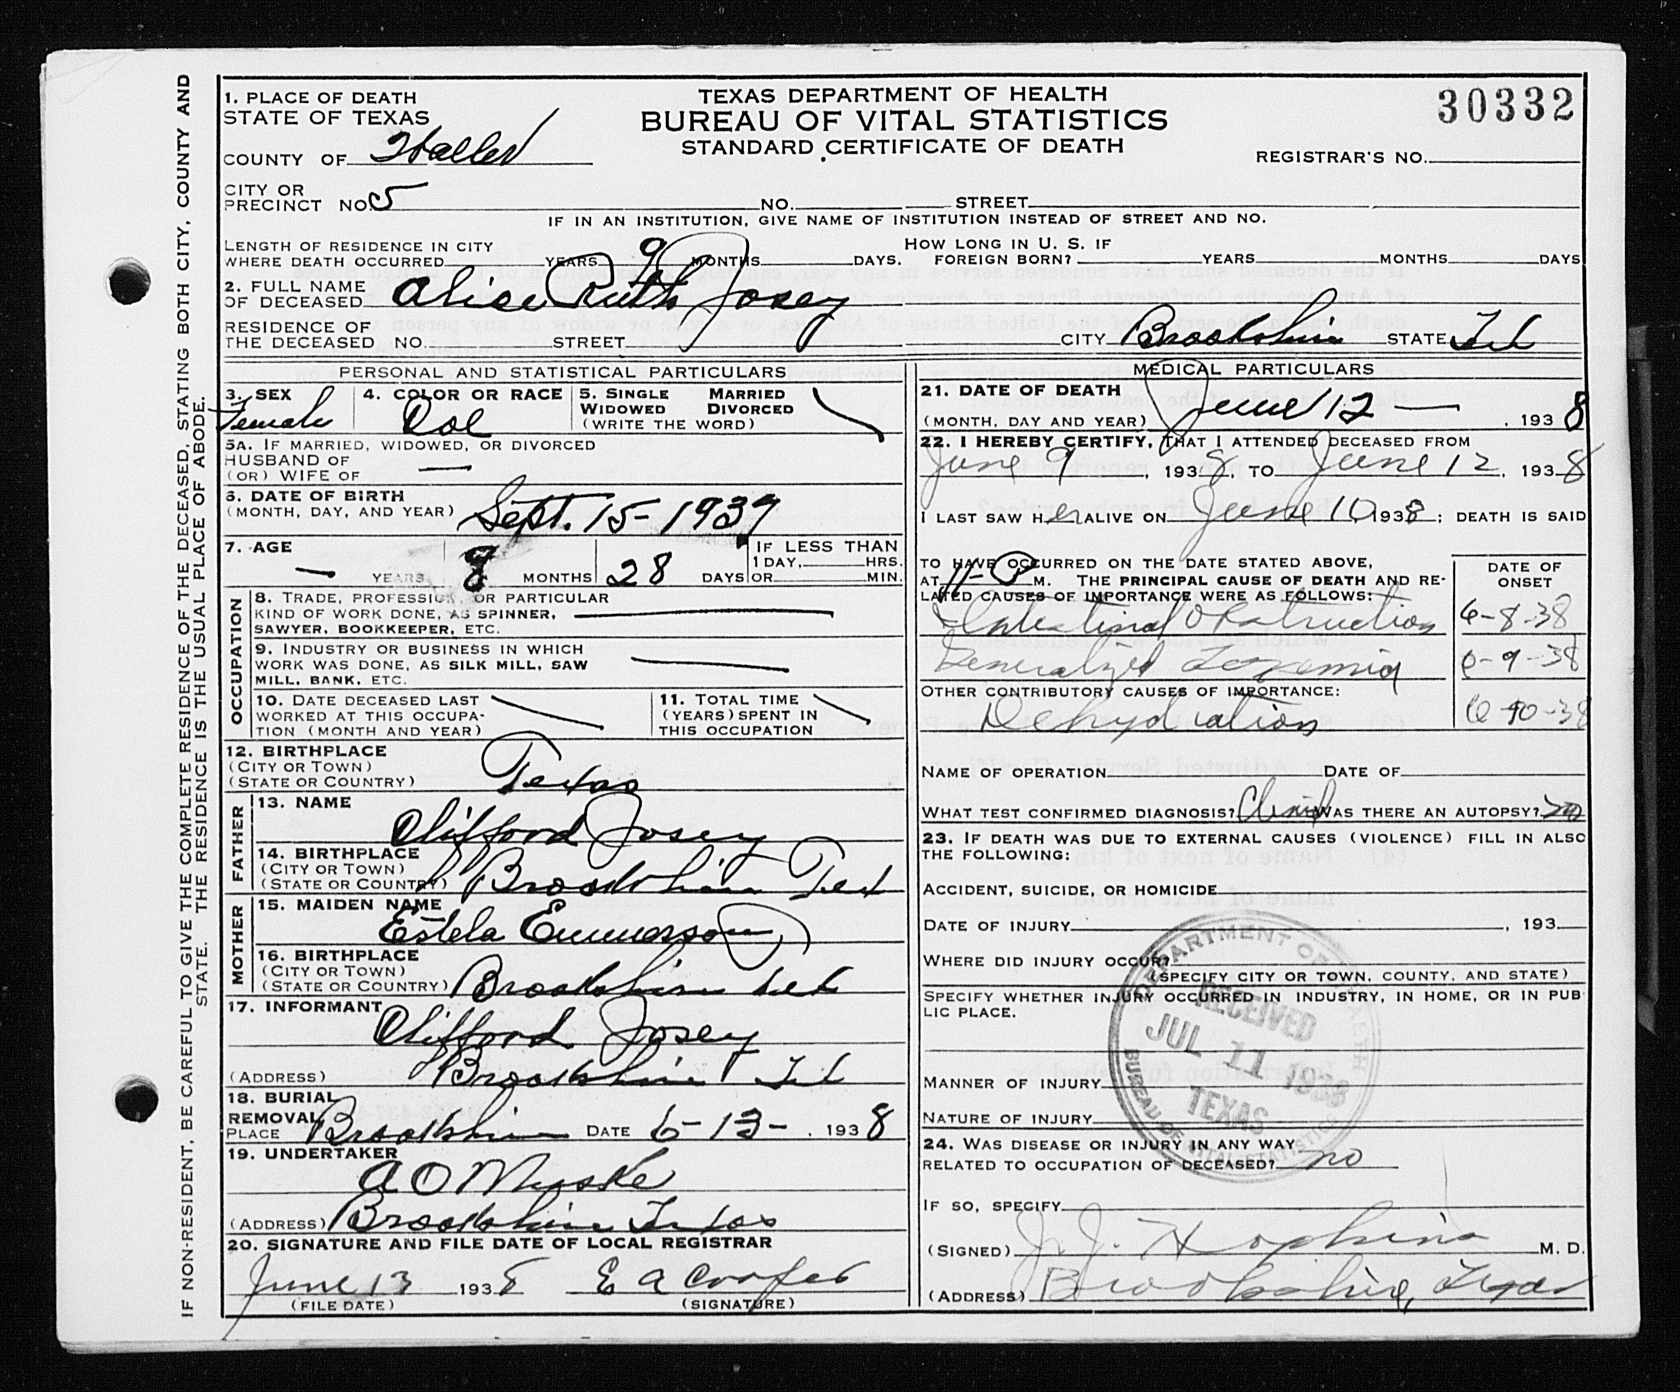 TEXAS DEPARTMENT OF HEALTH
BUREAU OF VITAL STATISTICS
STANDARD CERTIFICATE OF DEATH
30332
REGISTRAR'S NO.
1. PLACE OF DEATH
STATE OF TEXAS
COUNTY OF Waller
CITY OR
PRECINCT NO. 5 NO. STREET
IF IN AN INSTITUTION, GIVE NAME OF INSTITUTION INSTEAD OF STREET AND NO.
LENGTH OF RESIDENCE IN CITY
WHERE DEATH OCCURRED YEARS 9 MONTHS DAYS.
HOW LONG IN U. S. IF
FOREIGN BORN? YEARS MONTHS DAYS
2. FULL NAME
OF DECEASED Alice Ruth Josey
RESIDENCE OF
THE DECEASED NO. STREET CITY Brookshire STATE Tex
PERSONAL AND STATISTICAL PARTICULARS
3. SEX
Female
4. COLOR OR RACE
Col
5. SINGLE MARRIED
WIDOWED DIVORCED
(WRITE THE WORD)
5A. IF MARRIED, WIDOWED, OR DIVORCED
HUSBAND OF
(OR) WIFE OF —
6. DATE OF BIRTH
(MONTH, DAY, AND YEAR) Sept. 15-1937
7. AGE
— YEARS 8 MONTHS 28 DAYS
IF LESS THAN
1 DAY, HRS.
OR MIN.
OCCUPATION
8. TRADE, PROFESSION, OR PARTICULAR
KIND OF WORK DONE, AS SPINNER,
SAWYER, BOOKKEEPER, ETC.
9. INDUSTRY OR BUSINESS IN WHICH
WORK WAS DONE, AS SILK MILL, SAW
MILL, BANK, ETC.
10. DATE DECEASED LAST
WORKED AT THIS OCCUPA-
TION (MONTH AND YEAR)
11. TOTAL TIME
(YEARS) SPENT IN
THIS OCCUPATION
12. BIRTHPLACE
(CITY OR TOWN)
(STATE OR COUNTRY) Texas
FATHER
13. NAME
Clifford Josey
14. BIRTHPLACE
(CITY OR TOWN)
(STATE OR COUNTRY) Brookshire Tex
MOTHER
15. MAIDEN NAME
Estela Emmerson
16. BIRTHPLACE
(CITY OR TOWN)
(STATE OR COUNTRY) Brookshire Tex
17. INFORMANT
Clifford Josey
(ADDRESS) Brookshire Tex
18. BURIAL
REMOVAL
PLACE Brookshire DATE 6-13- , 1938
19. UNDERTAKER
A O Muske
(ADDRESS) Brookshire Texas
20. SIGNATURE AND FILE DATE OF LOCAL REGISTRAR
June 13 1938 E A Cooper
(FILE DATE) (SIGNATURE)
MEDICAL PARTICULARS
21. DATE OF DEATH
(MONTH, DAY AND YEAR) June 12 — , 1938
22. I HEREBY CERTIFY, THAT I ATTENDED DECEASED FROM
June 9, 1938, TO June 12, 1938
I LAST SAW HER ALIVE ON June 10 1938; DEATH IS SAID
TO HAVE OCCURRED ON THE DATE STATED ABOVE,
AT 11-P M. THE PRINCIPAL CAUSE OF DEATH AND RE-
LATED CAUSES OF IMPORTANCE WERE AS FOLLOWS:
DATE OF
ONSET
Intestinal Obstruction 6-8-38
Generalized Toxemia 6-9-38
OTHER CONTRIBUTORY CAUSES OF IMPORTANCE:
Dehydration 6-10-38
NAME OF OPERATION DATE OF
WHAT TEST CONFIRMED DIAGNOSIS? WAS THERE AN AUTOPSY? no
23. IF DEATH WAS DUE TO EXTERNAL CAUSES (VIOLENCE) FILL IN ALSO
THE FOLLOWING:
ACCIDENT, SUICIDE, OR HOMICIDE
DATE OF INJURY , 193
WHERE DID INJURY OCCUR?
(SPECIFY CITY OR TOWN, COUNTY, AND STATE)
SPECIFY WHETHER INJURY OCCURRED IN INDUSTRY, IN HOME, OR IN PUB
LIC PLACE.
MANNER OF INJURY
NATURE OF INJURY
24. WAS DISEASE OR INJURY IN ANY WAY
RELATED TO OCCUPATION OF DECEASED? no
IF SO, SPECIFY
(SIGNED) J. J. Hopkins M. D.
(ADDRESS) Brookshire, Texas
DEPARTMENT OF HEALTH
RECEIVED
JUL 11 1938
TEXAS
BUREAU OF VITAL STATISTICS
IF NON-RESIDENT, BE CAREFUL TO GIVE THE COMPLETE RESIDENCE OF THE DECEASED, STATING BOTH CITY, COUNTY AND
STATE. THE RESIDENCE IS THE USUAL PLACE OF ABODE.